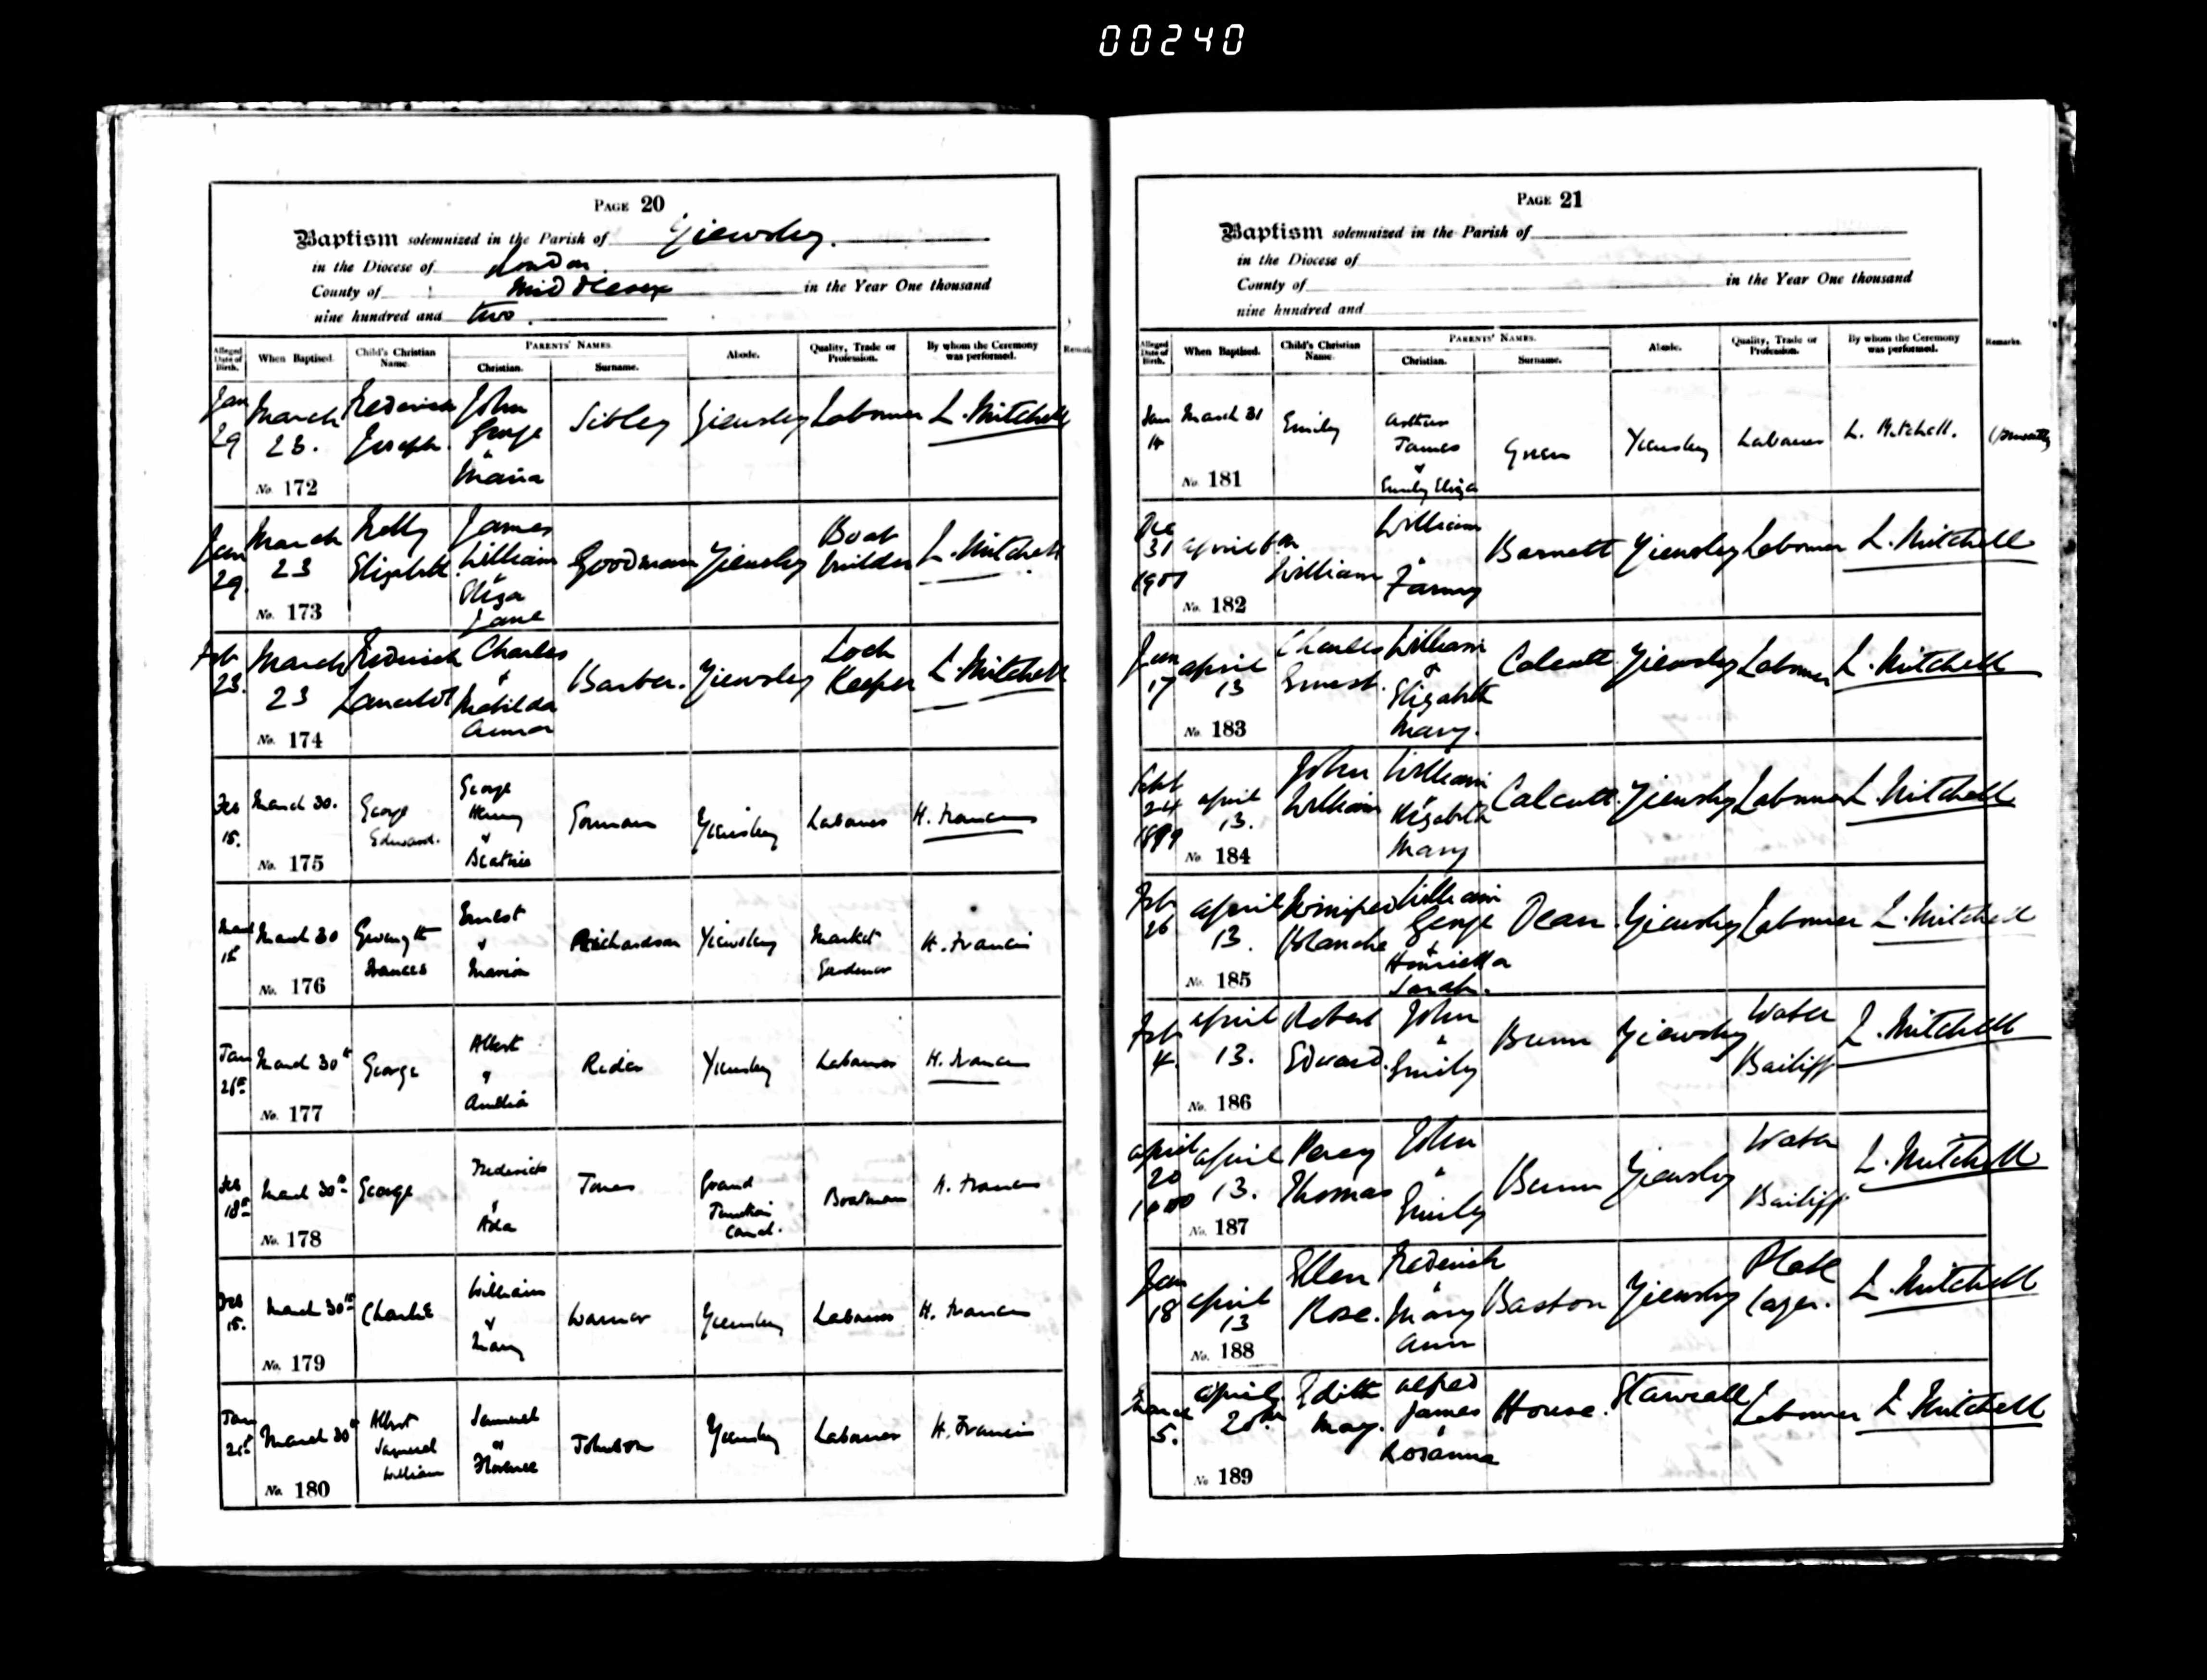 00240
PAGE 20
Baptism solemnized in the Parish of Yiewsley.
in the Diocese of London.
County of Middlesex in the Year One thousand
nine hundred and two.
Alleged Date of Birth. When Baptised. Child's Christian Name. PARENTS' NAMES. Christian. Surname. Abode. Quality, Trade or Profession. By whom the Ceremony was performed. Remarks
Jan 29 March 23. No. 172 Frederick Joseph. John George & Maria Sibley Yiewsley Labourer L. Mitchell
Jan 29. March 23 No. 173 Nelly Elizabeth James William & Eliza Jane Goodman Yiewsley Boat builder L. Mitchell
Feb 23. March 23 No. 174 Frederick Lancelot Charles & Matilda Anna Barber. Yiewsley Lock Keeper L. Mitchell
Feb 15. March 30. No. 175 George Edward. George Henry & Beatrice Yiewsley Labourer H. Francis
March 30 No. 176 Frances Ernest & Marian Richardson Yiewsley Market Gardener H. Francis
Jan March 30th No. 177 George Albert & Amelia Rider Yiewsley Labourer H. Francis
Feb 18th March 30th No. 178 George Frederick & Ada Jones Grand Junction Canal. Boatman H. Francis
Feb 15. March 30th No. 179 Charlie William & Warner Yiewsley Labourer H. Francis
Jan March 30th No. 180 Albert Samuel William Samuel & Florence Johnson Yiewsley Labourer H. Francis
PAGE 21
Baptism solemnized in the Parish of
in the Diocese of
County of in the Year One thousand
nine hundred and
Alleged Date of Birth. When Baptised. Child's Christian Name. PARENTS' NAMES. Christian. Surname. Abode. Quality, Trade or Profession. By whom the Ceremony was performed. Remarks.
Jan 14 March 31 No. 181 Emily Arthur James & Emily Eliza Green Yiewsley Labourer L. Mitchell. (privately)
Dec 31 1901 April 6 No. 182 William William & Fanny Barnett Yiewsley Labourer L. Mitchell
Jan 17 April 13 No. 183 Charles Ernest. William & Elizabeth Mary. Calcutt Yiewsley Labourer L. Mitchell
Sept 24 1899 April 13. No. 184 John William William & Elizabeth Mary Calcutt. Yiewsley Labourer L. Mitchell
Feb 26 April 13. No. 185 Winifred Blanche William George & Henrietta Sarah. Dean. Yiewsley Labourer L. Mitchell
Feb 4. April 13. No. 186 Robert Edward. John & Emily Bunn Yiewsley Water Bailiff L. Mitchell
April 20 1900 April 13. No. 187 Percy Thomas John & Emily Bunn Yiewsley Water Bailiff L. Mitchell
Jan 18 April 13 No. 188 Ellen Rose. Frederick & Mary Ann Baston Yiewsley Plate layer. L. Mitchell
March 5. April 20th No. 189 Edith May. Alfred James & Rosanna House. Labourer L. Mitchell